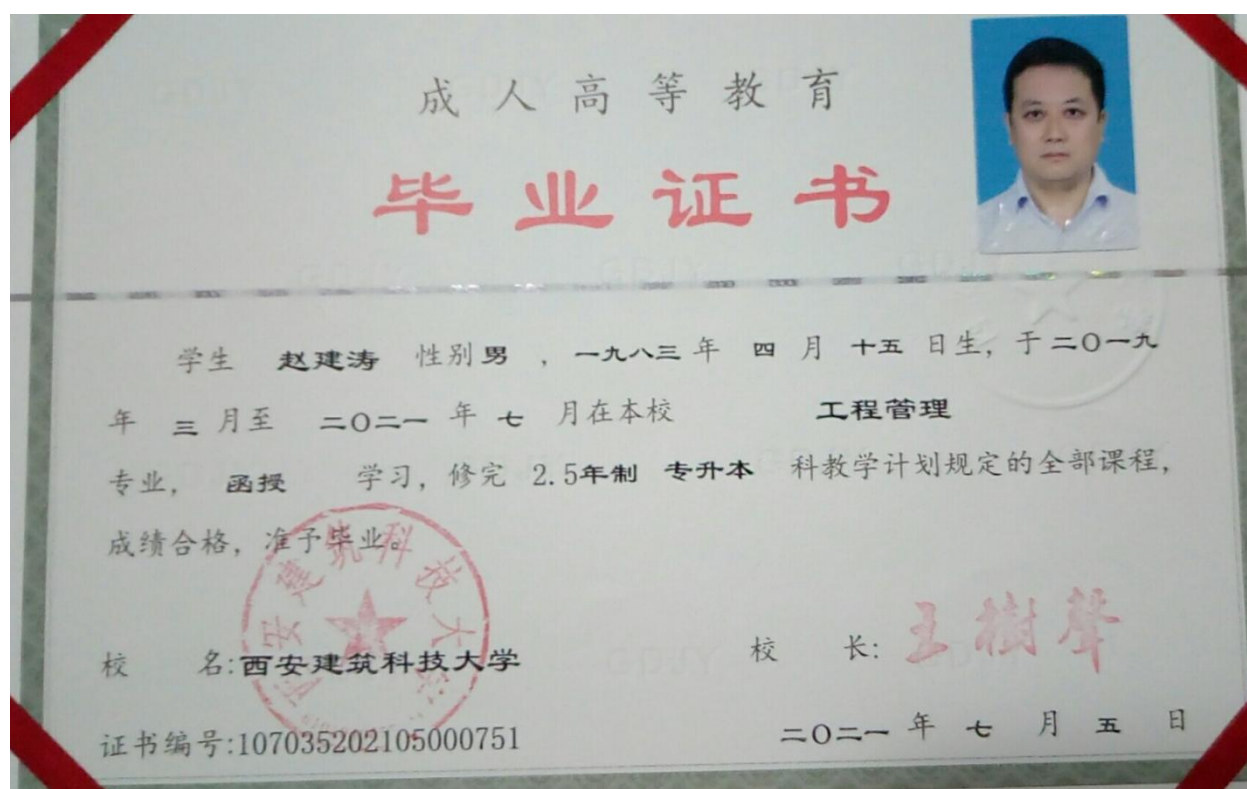 成人高等教育
毕业证书
学生 赵建涛 性别 男 ，一九八三 年 四 月 十五 日生，于 二〇一九
年 三 月至 二〇二一 年 七 月在本校 工程管理
专业， 函授 学习，修完 2.5年制 专升本 科教学计划规定的全部课程，
成绩合格，准予毕业。
西安建筑科技大学
校 名:西安建筑科技大学
校 长: 王樹聲
证书编号:107035202105000751
二〇二一 年 七 月 五 日